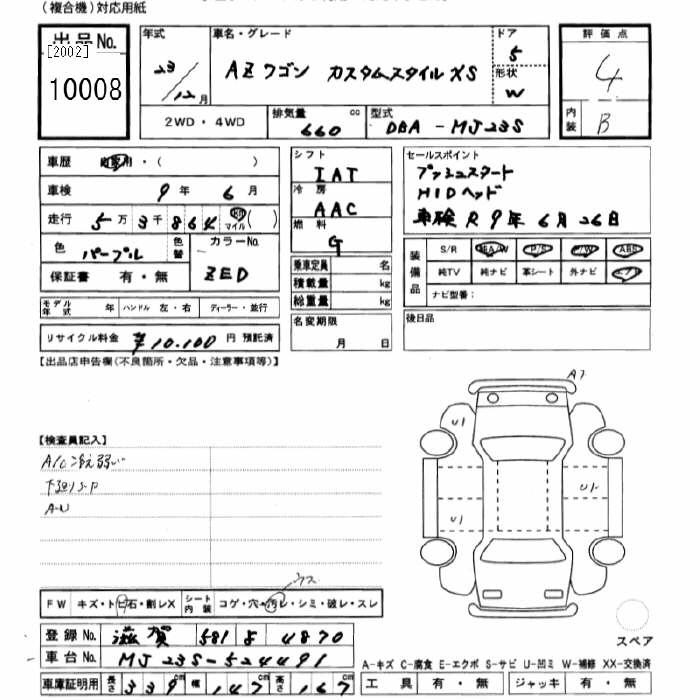 (複合機)対応用紙
出品No. [2002] 10008
年式 23/12月
車名・グレード AZワゴン カスタムスタイルXS
ドア 5
形状 W
評価点 4
内装 B
2WD・4WD
排気量 660 cc
型式 DBA-MJ23S
車歴 自家用・( )
車検 9年 6月
走行 5万3千864 km マイル ( )
色 パープル 色替
カラーNo. ZED
保証書 有・無
モデル年式 年 ハンドル 左・右 ディーラー・並行
リサイクル料金 ¥10.100円 預託済
シフト IAT
冷房 AAC
燃料 G
乗車定員 名
積載量 kg
総重量 kg
名変期限 月 日
セールスポイント
プッシュスタート
HIDヘッド
車検 R9年6月26日
装備品 S/R 純A/W P/S P/W ABS
純TV 純ナビ 革シート 外ナビ エアB
ナビ型番:
後日品
【出品店申告欄(不良箇所・欠品・注意事項等)】
【検査員記入】
A/C冷え弱い
A7
U1
U1
U1
FW キズ・トビ石・割レX シート内装 コゲ・穴・汚レ・シミ・破レ・スレ
登録No. 滋賀 581 8 4870
車台No. MJ23S-524491
車庫証明用 長さ 339cm 幅 147cm 高さ 167cm
スペア
A-キズ C-腐食 E-エクボ S-サビ U-凹ミ W-補修 XX-交換済
工具 有・無 ジャッキ 有・無